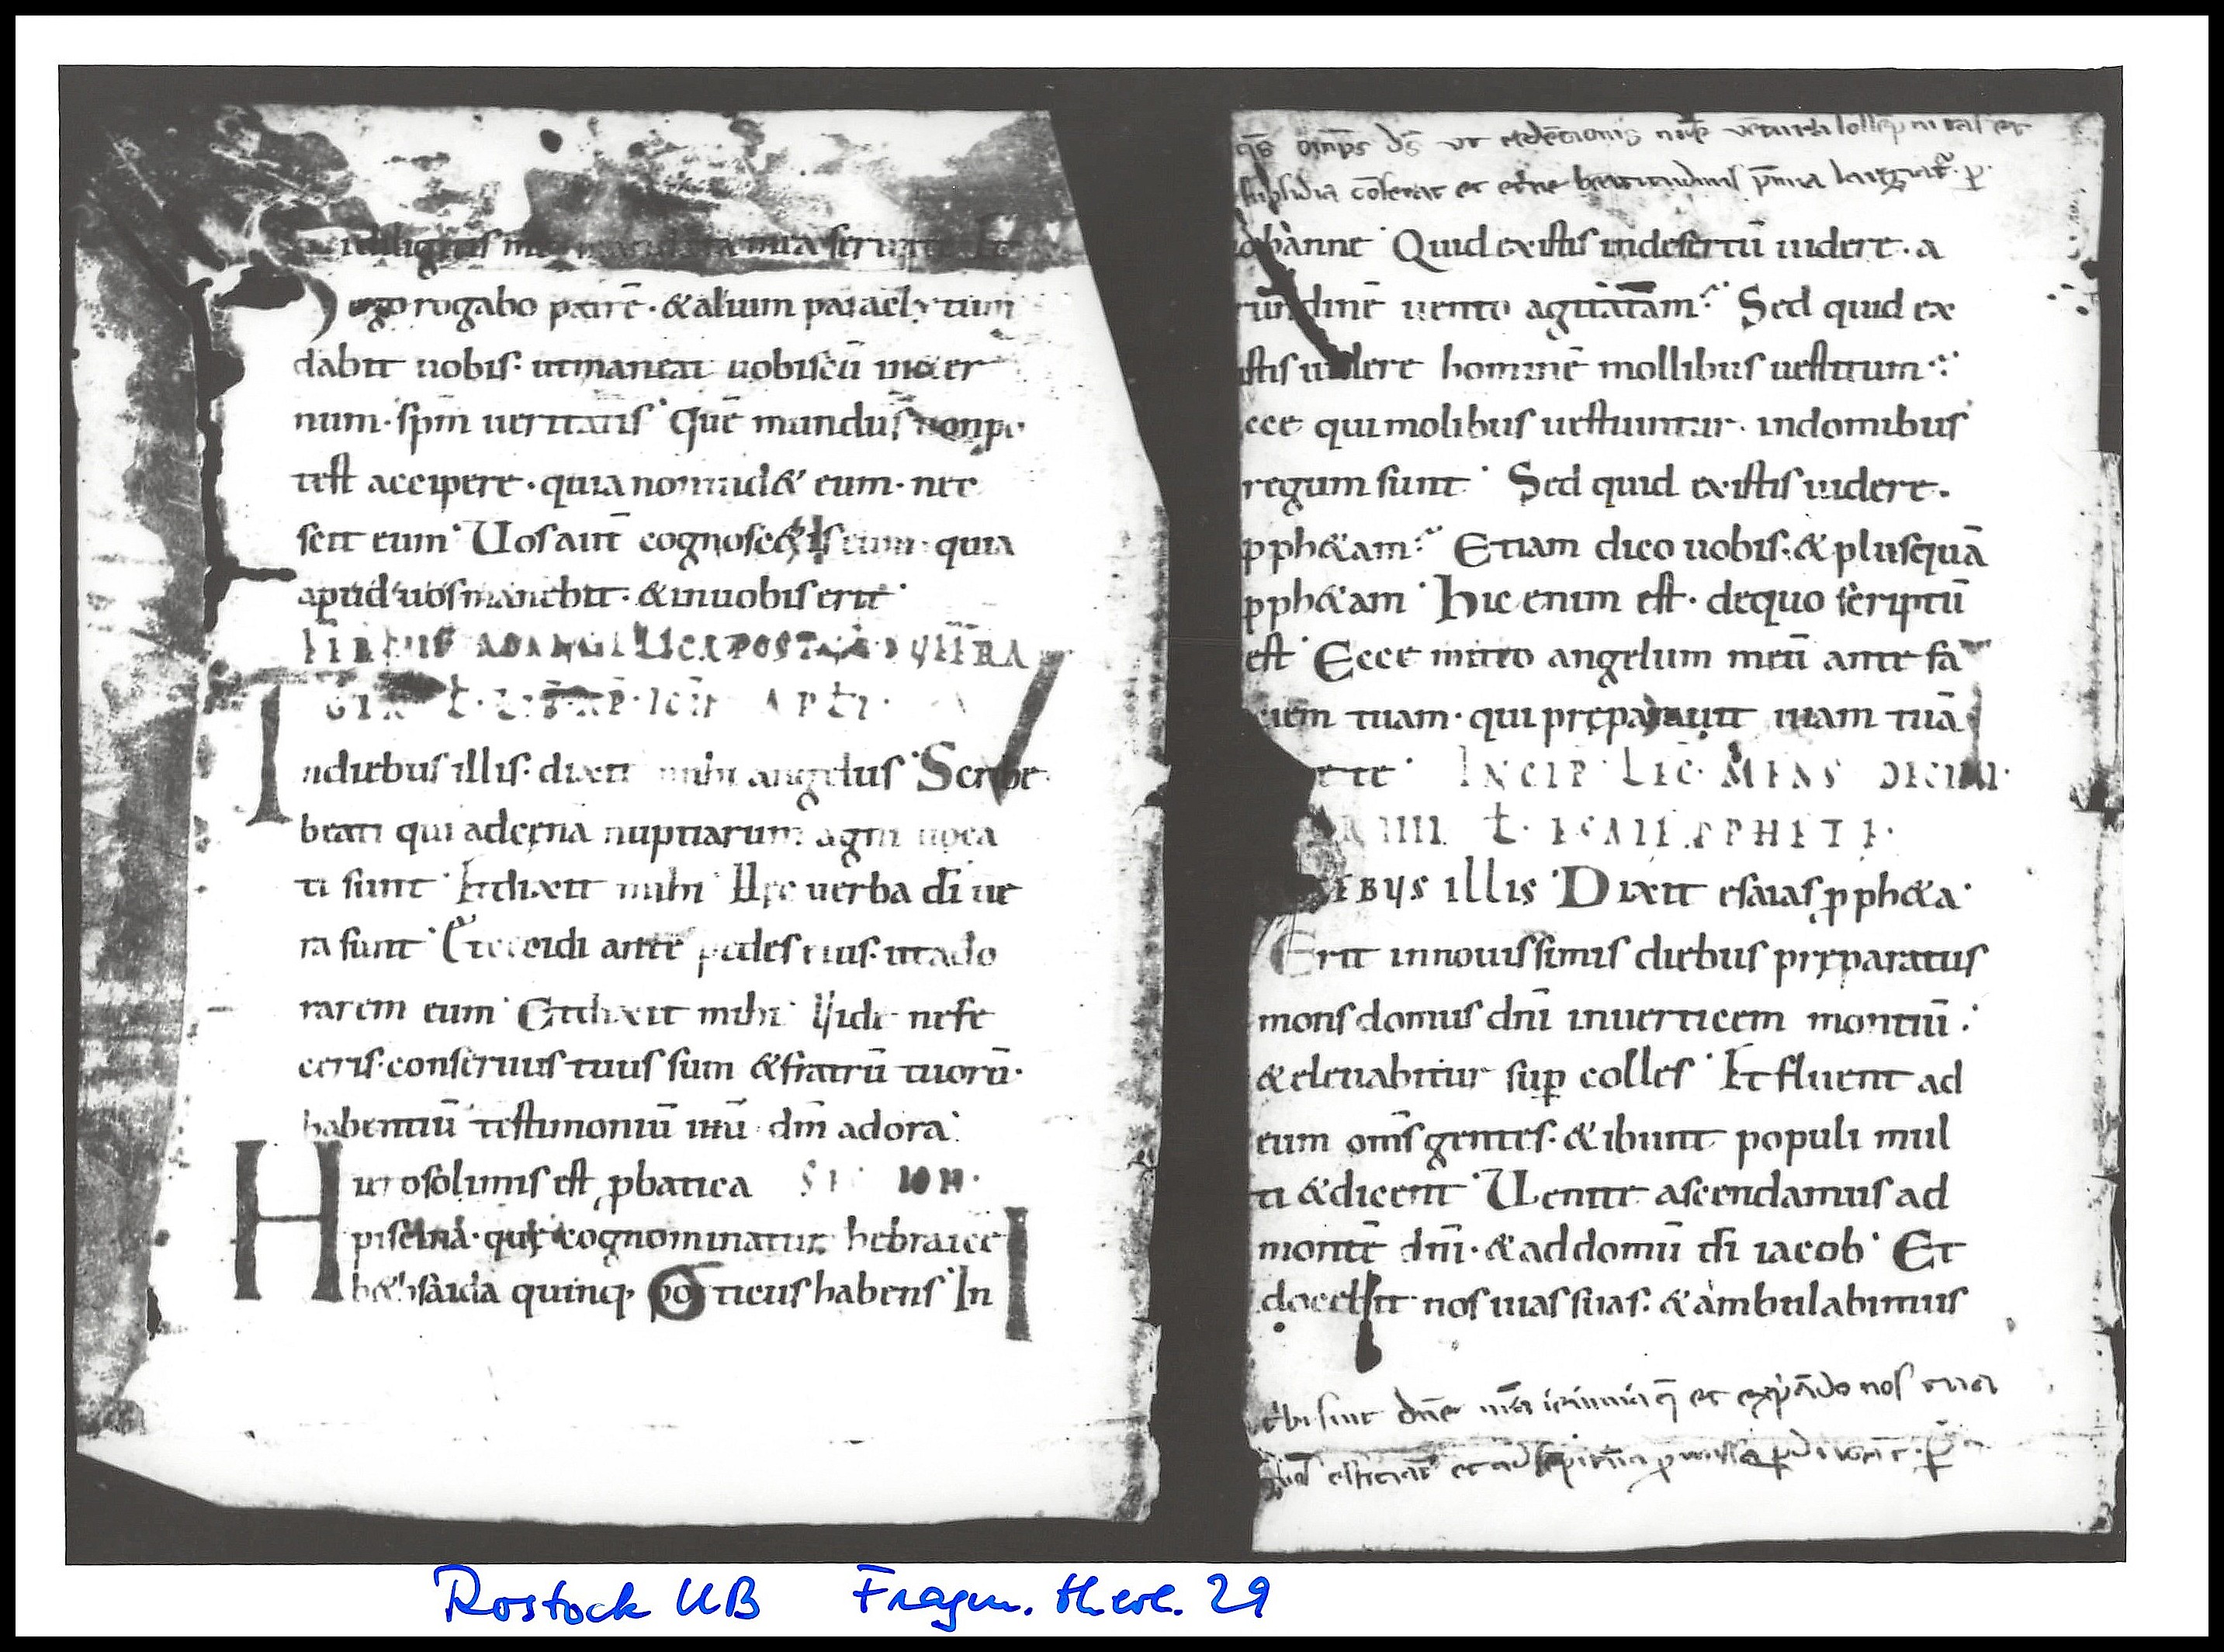 diligitis me mandata mea seruate Et
ego rogabo patrē · & alium paraclytum
dabit uobis · ut maneat uobiscū in &er
num · sp̄m ueritatis · Quē mundus non po
test accipere · quia non uid& eum · nec
scit eum · Uos aut̄ cognosc&is eum · quia
apud uos manebit · & in uobis erit ·
ndiebus illis · dixit mihi angelus · Scribe
beati qui ad cęna nuptiarum agni uoca
ti sunt · Et dixit mihi · Hęc uerba d̄i ue
ra sunt · Et cecidi ante pedes eius · ut ado
rarem eum · Et dixit mihi · Uide ne fe
ceris · conseruus tuus sum & fratrū tuorū ·
habentiū testimoniū ih̄u · dn̄m adora ·
H ierosolimis est p̱batica
piscina · quę cognominatur hebraice
b&hsaida quinq; porticus habens · In
q̄s om̄ps d̄s ut
subsidia beatitudinis
iohanne · Quid existis in desertū uidere · a
rundinē uento agitatam · Sed quid ex
istis uidere hominē mollibus uestitum ·
ecce qui molibus uestiuntur · in domibus
regum sunt · Sed quid existis uidere ·
p̱ph&am · Etiam dico uobis · & plusquā
p̱ph&am · Hic enim est · de quo scriptū
est · Ecce mitto angelum meū ante fa
ciem tuam · qui pręparauit uiam tuā
te · INCIP · LEC · MENS DECIMI ·
IIII L · ISAIE P̱PHETE ·
IEBUS ILLIS · Dixit esaias p̱ph&a ·
Erit in nouissimis diebus pręparatus
mons domus dn̄i in uerticem montiū ·
& eleuabitur sup̱ colles · Et fluent ad
eum om̄s gentes · & ibunt populi mul
ti & dicent · Uenite ascendamus ad
montē dn̄i · & ad domū d̄i iacob · Et
docebit nos uias suas · & ambulabimus
sint dn̄e et nos
Rostock UB Fragm. theol. 29